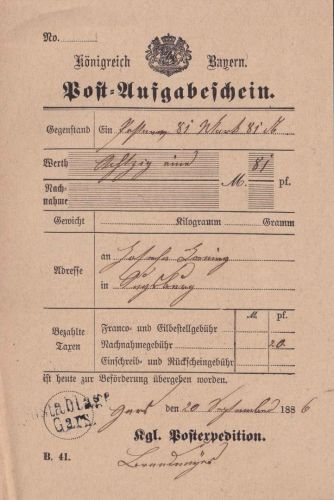 No.
Königreich Bayern.
Post-Aufgabeschein.
Gegenstand Ein 81 Mark 81 M
Werth Achtzig eins M. 81 pf.
Nach-
nahme
Gewicht Kilogramm Gramm
an
Adresse
in Augsburg
M. pf.
Franco- und Eilbestellgebühr
Bezahlte
Taxen
Nachnahmegebühr 20
Einschreib- und Rückscheingebühr
ist heute zur Beförderung übergeben worden.
Gars den 20 September 1886
Gars
Kgl. Postexpedition.
B. 41.